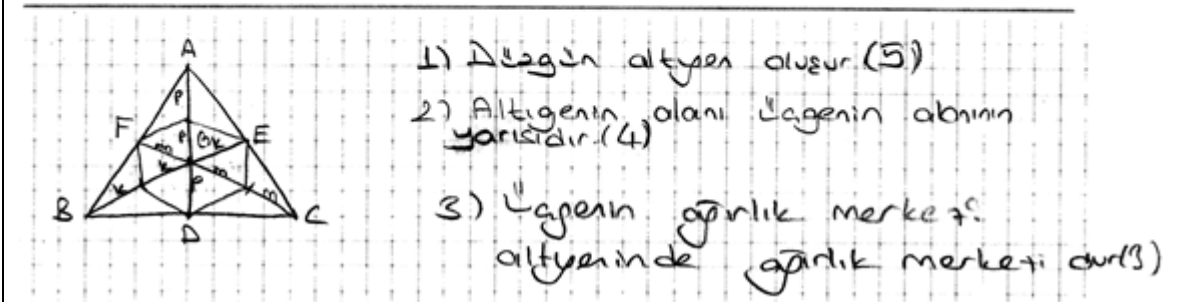 A
P
F
P
k
E
m
k
m
k
P
m
B
D
C
1) Düzgün altıgen oluşur (5)
2) Altıgenin alanı üçgenin alanının
yarısıdır. (4)
3) Üçgenin ağırlık merkezi
altıgeninde ağırlık merkezi dur(3)